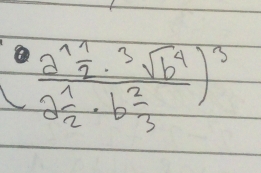 ( a^1 1/2 · ³√b⁴ / a 1/2 · b 2/3 )³